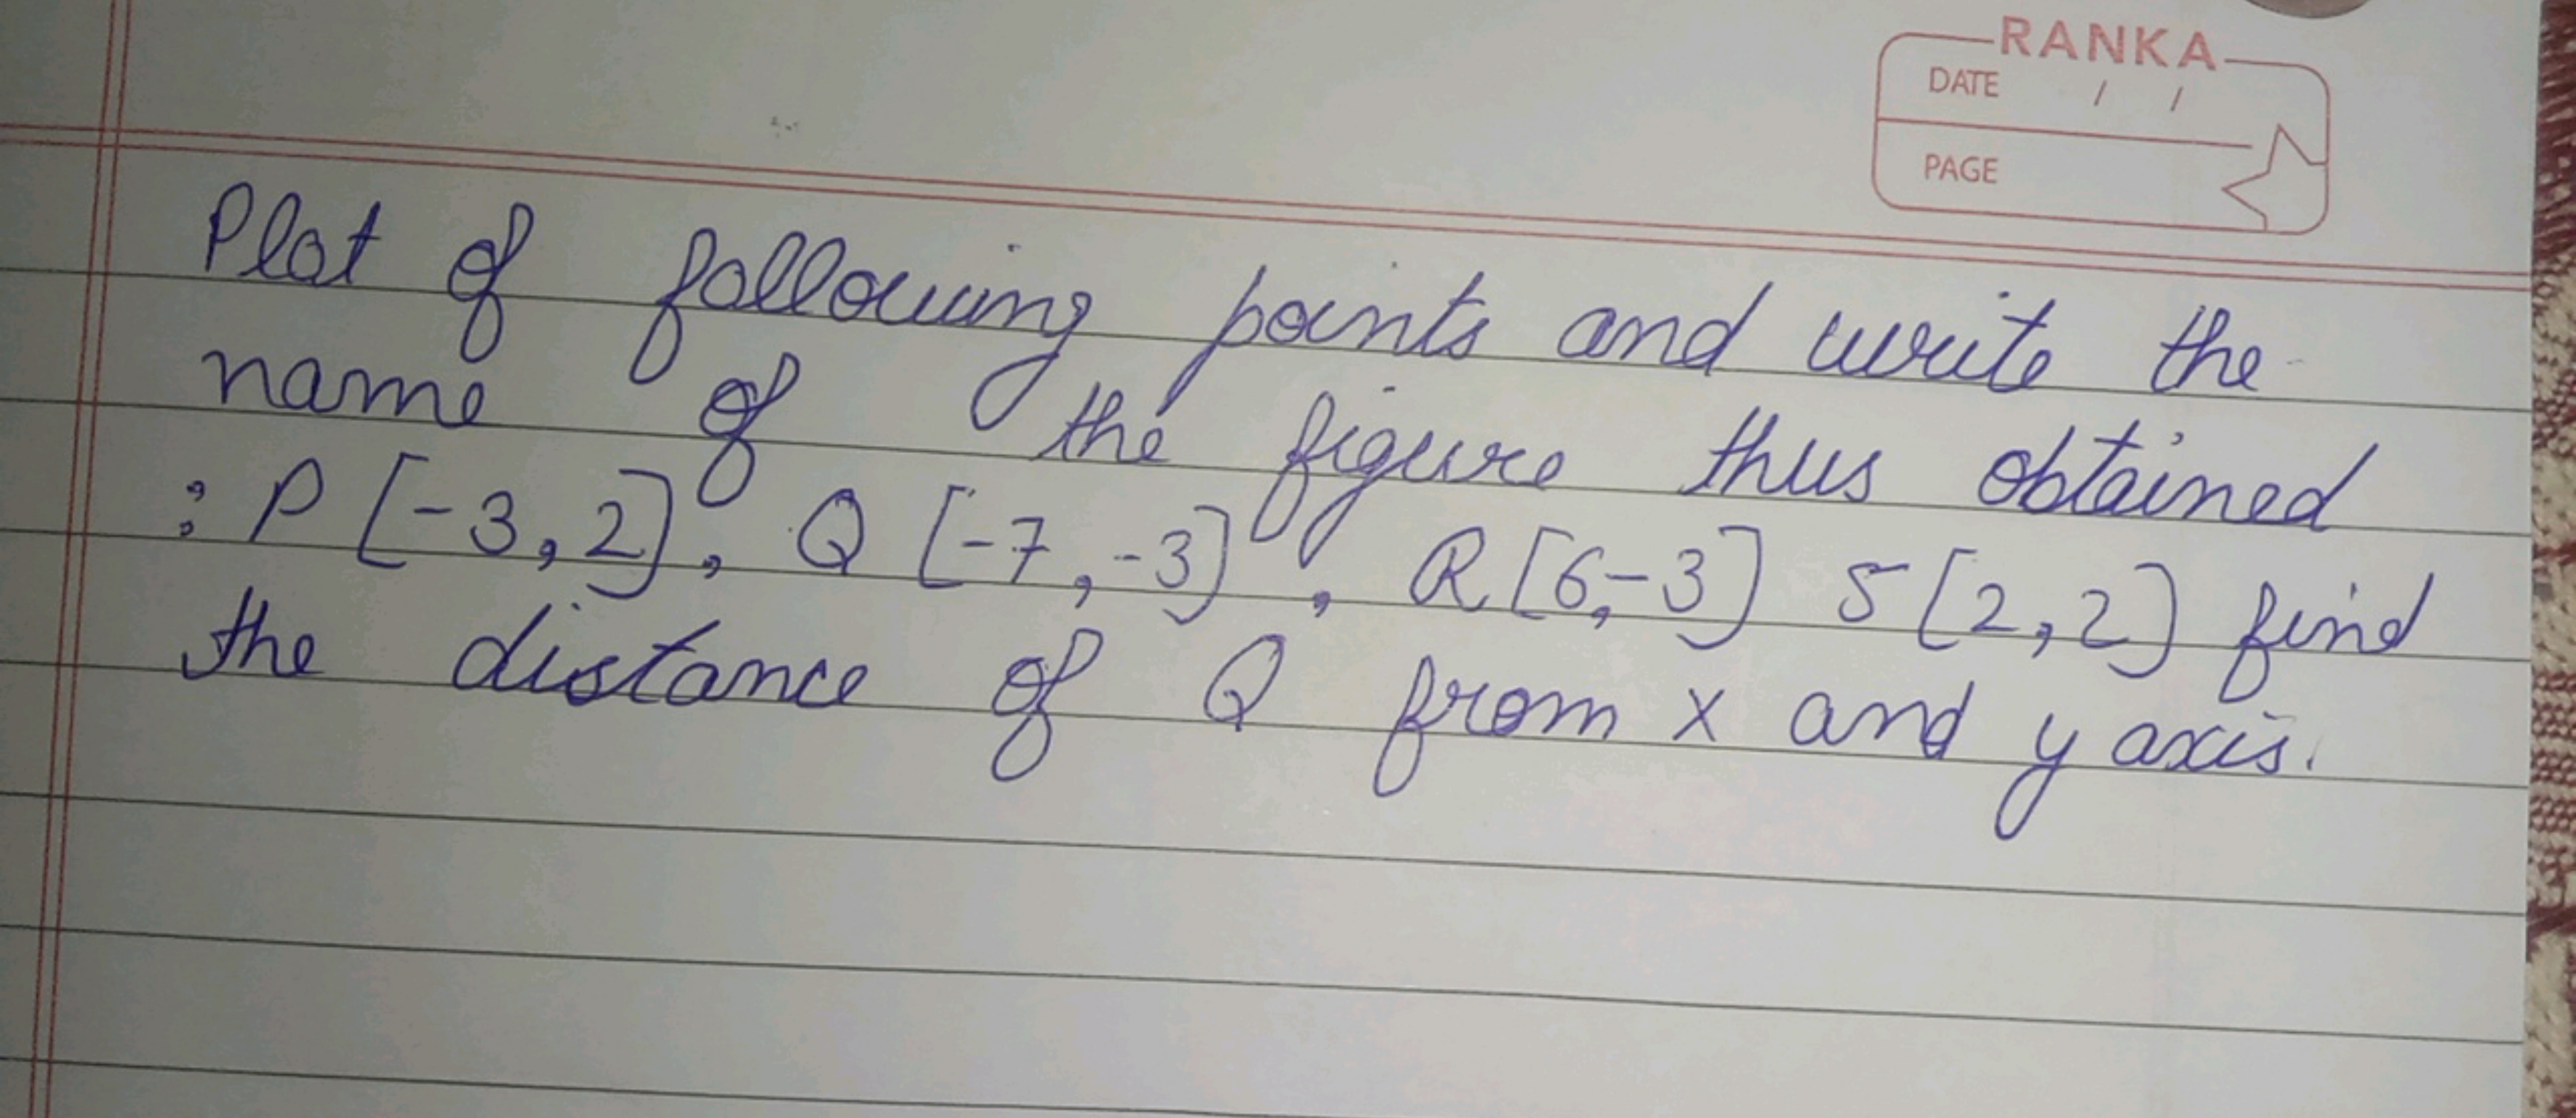 RANKA
DATE / /
PAGE
Plot of following points and write the
name of the figure thus obtained
: P [-3, 2], Q [-7, -3], R [6,-3] S [2, 2] find
the distance of Q from x and y axis.